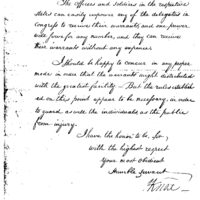 The officers and soldiers in the respective
states can easily empower any of the delegates in
congress to receive their warrants, and one power
will serve for any number, and they can receive
their warrants without any expense
I should be happy to concur in any proper
mode in order that the warrants might distributed
with the greatest facility - But the rules establish
ed on this point appear to be necessary, in order
to guard as well the individuals as the public
from injury.
I have the honor to be, Sir
with the highest respect
Your most obedient
Humble servant
HKnox